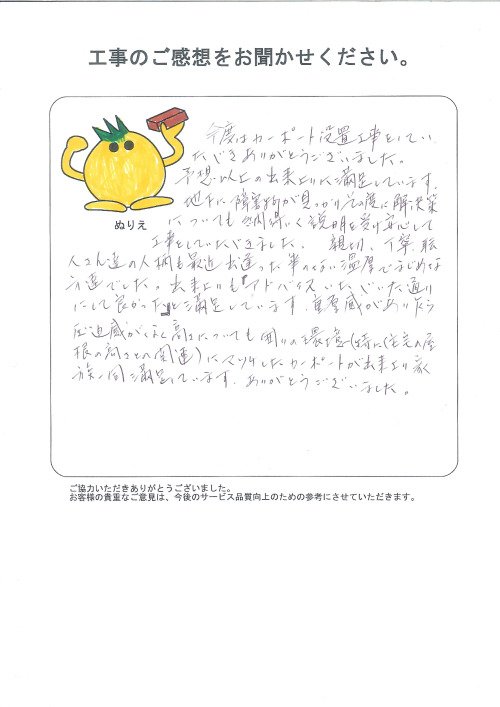 工事のご感想をお聞かせください。
ぬりえ
今度はカーポート設置工事をしてい
ただきありがとうございました。
予想以上の出来上りに満足しています。
地下に障害物が見つかり、その度に解決策
についても納得いく説明を受け安心して
工事をしていただきました。親切、丁寧、職
人さん達の人柄も最近出逢った事のない温厚でまじめな
方達でした。出来上りもアドバイスいただいた通り
にして良かったと満足しています。重厚感がありながら
圧迫感がなく高さについても囲りの環境(特に住宅の屋
根の高さとの関連)にマッチしたカーポートが出来上り家
族一同満足しています。ありがとうございました。
ご協力いただきありがとうございました。
お客様の貴重なご意見は、今後のサービス品質向上のための参考にさせていただきます。